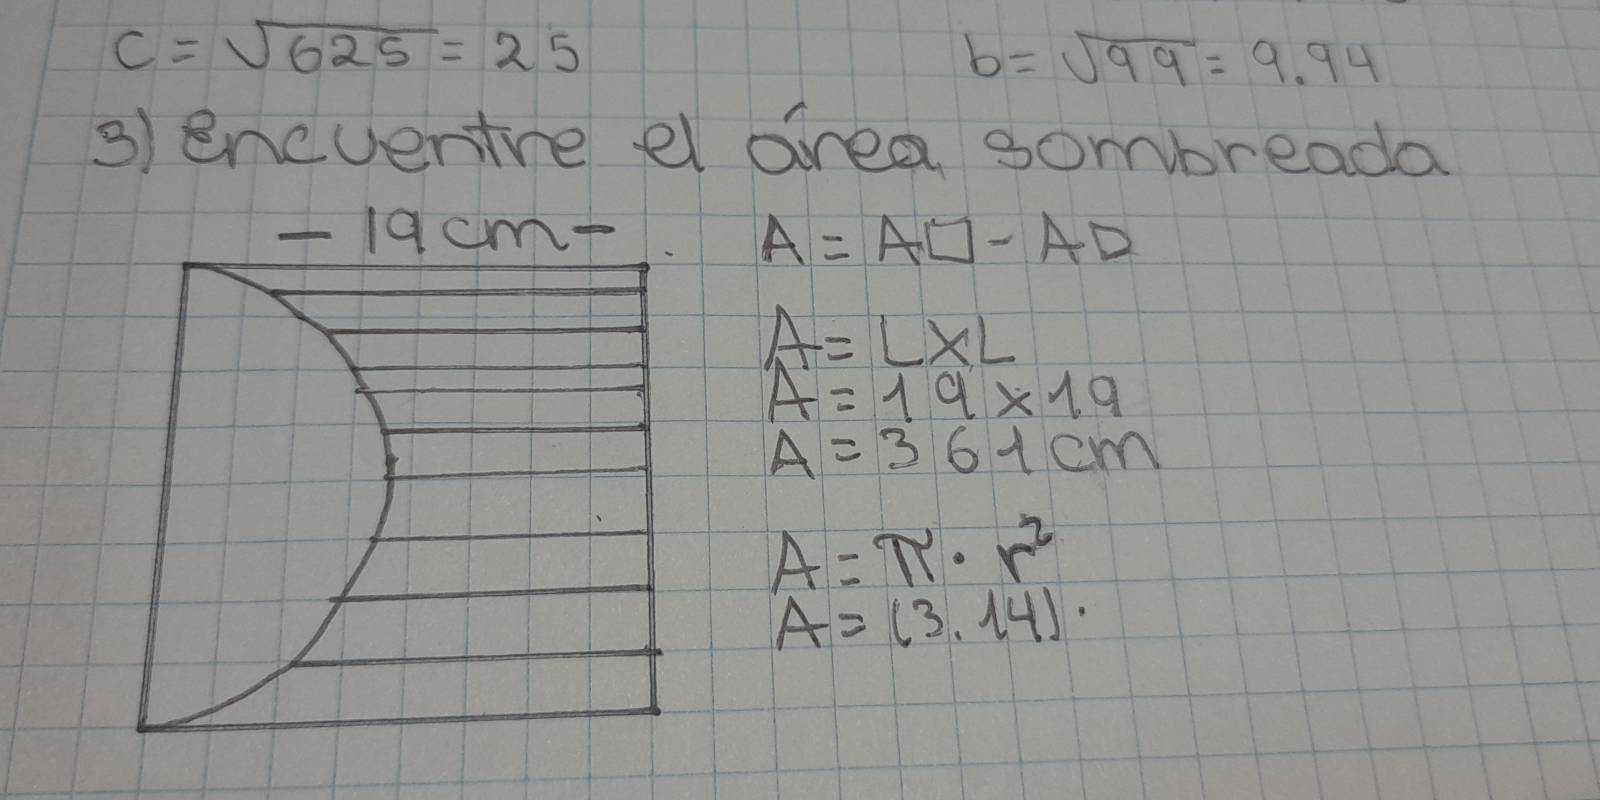 c = √625 = 25
b = √99 = 9.94
3) encuentre el área sombreada
- 19 cm -
A = A□ - AD
A = L×L
A = 19 × 19
A = 361 cm
A = π · r²
A = (3.14) ·